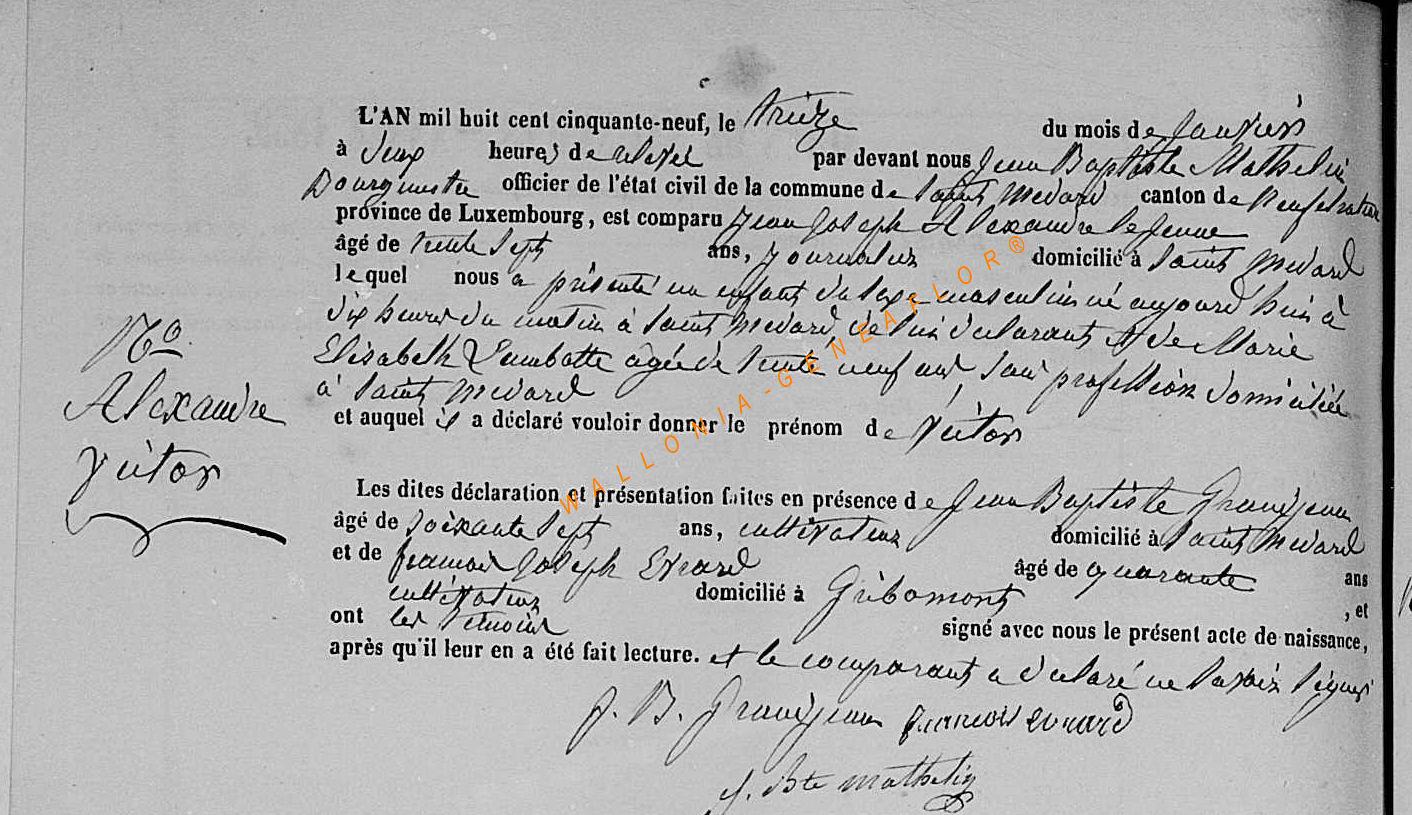 L'AN mil huit cent cinquante-neuf, le treize du mois de Janvier
à deux heures de relevé par devant nous Jean Baptiste Mathelin
Bourgmestre officier de l'état civil de la commune de Saint Medard canton de Neufchateau
province de Luxembourg, est comparu Jean Joseph Alexandre le jeune
âgé de trente sept ans, journalier domicilié à Saint Medard
lequel nous a présenté un enfant du sexe masculin né aujourd'hui à
dix heures du matin à Saint Medard, de lui déclarant & de Marie
Elisabeth Lambotte agée de trente neuf ans, sans profession domiciliée
à Saint Medard
et auquel il a déclaré vouloir donner le prénom de Victor
No
Alexandre
Victor
Les dites déclaration et présentation faites en présence de Jean Baptiste Grandjean
âgé de soixante sept ans, cultivateur domicilié à Saint Medard
et de francois Joseph Evrard âgé de quarante ans
cultivateur domicilié à Gribomont , et
ont les témoins signé avec nous le présent acte de naissance,
après qu'il leur en a été fait lecture. et le comparant a declaré ne savoir signer
J. B. Grandjean francois evrard
J. Bte Mathelin
WALLONIA-GENEAFLOR®